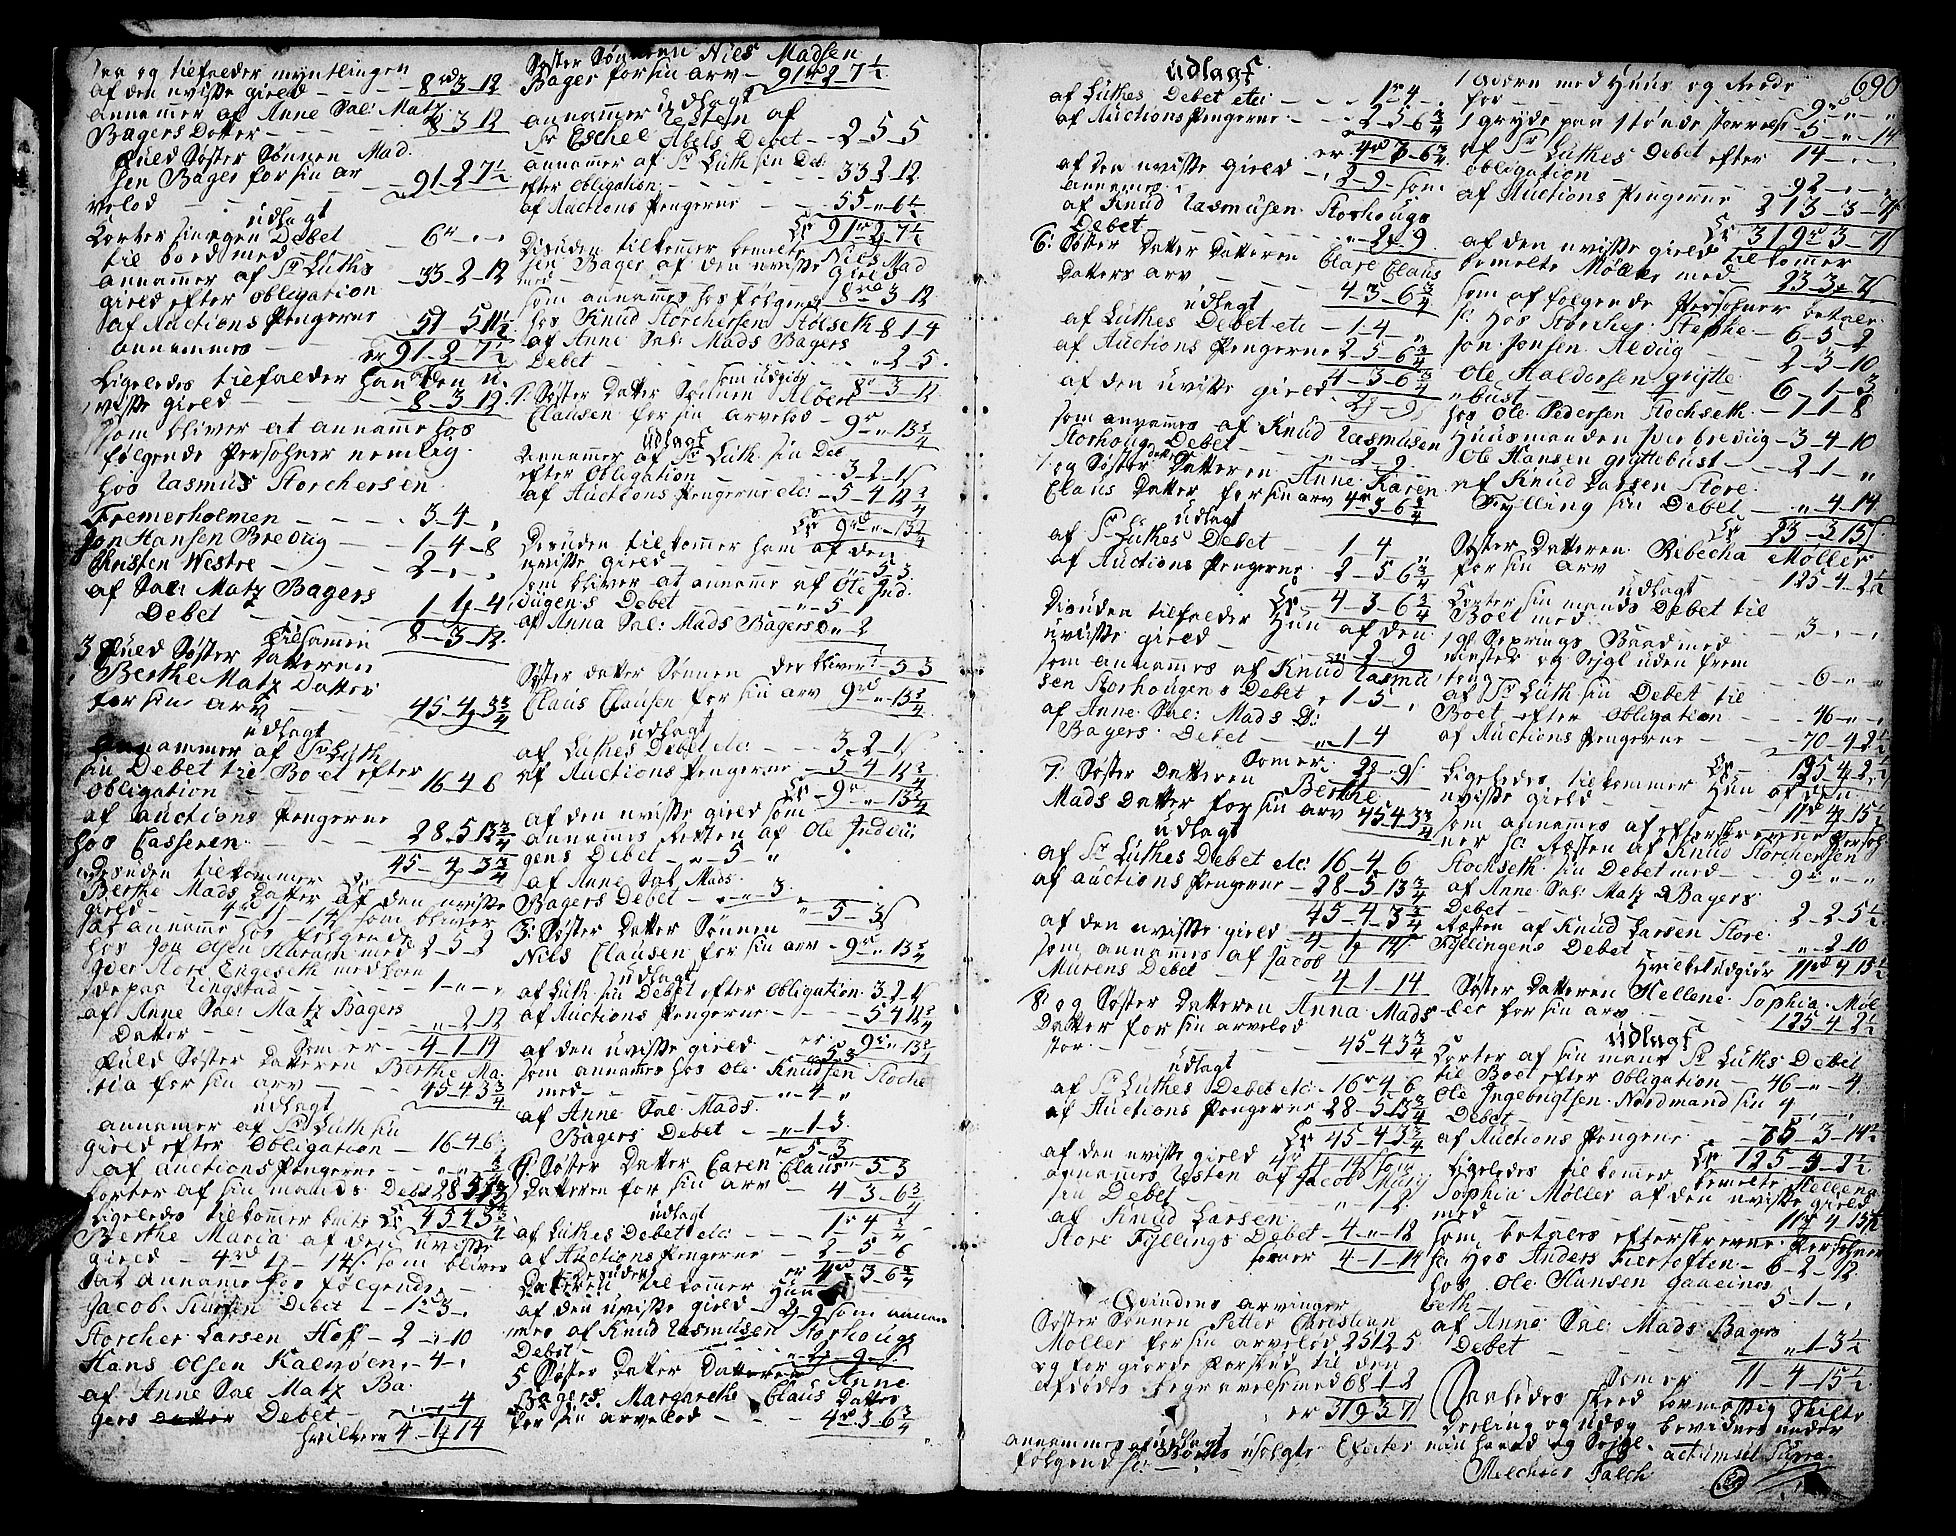 og tilfalder myntlingen
af den uvisse gield - - - 8rd 3 - 12
annammer af Anne Sal: Matz
Bagers Datter - - - - 8 3 12
Fuld Søster Sønnen Mad.
sen Bager for sin ar
velod - - - 91 - 2 7 1/2
udlagt
Korter sin egen Debet
til bord med - 6 - " - "
annammer af Sr Luths
gield efter obligation - 33 - 2 - 12
af Auctions Pengerne
annammes - 51 - 5 11 1/2
er 91 - 2 - 7 1/2
Ligeledes tilfalder han af den u.
visse gield - - - 8 - 3 - 12
som bliver at annamme hos
følgende Persohner nemlig.
hos Rasmus Storchersen
Fremerholmen - - - 3 - 4 - "
Jon Hansen Brevig - - - 1 - 4 - 8
Christen Westre - - - 2 - " - "
af Sal: Matz Bagers
Debet - - - 1 - 1 - 4
Tilsamen 8 - 3 - 12
3 Fuld Søster Datteren
Berthe Matz Datter
for sin arv - - 45 - 4 - 3 3/4
udlagt
annammer af Sr Luth
sin Debet til Boet efter
obligation - - - 16 4 6
af auctions Pengerne
hos Casseren - - - 28 - 5 13 3/4
45 - 4 - 3 3/4
Desuden tilkommer
Berthe Mads Datter af den uvisse
gield - - 4rd 1 - 14 s som bliver
at annamme hos følgende
hos Jon Olsen Haram med 2 - 5 - 2
Iver Store Engeseth med horn
Ringstad - - - 1 - " - "
af Anne Sal: Matz Bagers
Datter - - - " 2 12
Som er - - 4 - 1 - 14
Fuld Søster Datteren Berthe Ma.
ria for sin arv - - 45 - 4 3 3/4
udlagt
annamer af Sr Luth sin
gield efter Obligation - 16 - 4 6
af auctions Pengerne - - -
korter af sin mands Debet 28 5 13 3/4
Ligeledes tilkommer bmte Er 45 4 3 3/4
Berthe Maria af den uvisse
gield - 4rd 1 - 14 s som bliver
at annamme hos følgende
Jacob Debet - - 1 - 3 - "
Storcher Larsen Hoff - 2 - " - 10
Hans Olsen Kalvøen - 4 - "
af Anne Sal Matz Ba.
gers Datter Debet - - " - " - 4
hvilken 4 - 1 - 14
Søster Sønnen Niels Madsen
Bager for sin arv - 91rd 2 - 7 1/2
udlagt
annammer Resten af
Sr Eschel Abels Debet - 2 5 5
annammer af Sr Luth sin Deb:
efter Obligation - - - 33 2 12
af Auctions Pengerne - - 55 - " 6 1/2
Er 91rd 2 - 7 1/2
Desuden tilkommer bemelte Niels Mad
sen Bager af den uvisse gield
med - - - 8rd 3 - 12
som annammes hos følgende
hos Knud Storchersen Stolseth 8 1 4
af Anne Sal: Mads Bagers
Debet - - - " 2 - 5
som udgiør 8 - 3 - 12
1. Søster Datter Sønnen Albert
Clausen for sin arvelod - 9rd - " 13 3/4
udlagt
Annammer af Sr Luth. sin Deb
efter Obligation - - - 3 - 2 - 1
af Auctions Pengerne etc: - 5 - 4 12 3/4
Er 9rd - " - 13 3/4
Desuden tilkommer ham af den
uvisse gield - - - " - 5 3
som bliver at annamme af Ole Ind.
viigens Debet - - - " 5 - 1
af Anna Sal: Mads Bagers D - 2
der bliver " - 5 3
Søster datter Sønnen
Claus Clausen for sin arv 9rd - " 13 3/4
udlagt
af Luthes Debet etc: - - 3 - 2 - 1
af Auctions Pengerne - - 5 4 12 3/4
Er - 9rd - " - 13 3/4
af den uvisse gield som
annammes Resten af Ole Indvii
gens Debet - " - 5 - "
af Anne Sal Mads.
Bagers Debet - " - " - 3
" - 5 - 3
3: Søster Datter Sønnen
Niels Clausen for sin arv - 9rd - " 13 3/4
udlagt
af Luth sin Debet efter obligation. 3 - 2 - 1
af Auctions Pengerne - - - 5 4 12 3/4
er 9rd " - 13 3/4
af den uvisse gield - - " 5 3
som annammes hos Ole Knudsen Stoche
med - - - " - 4 - "
af Anne Sal Mads.
Bagers Debet - " - 1 - 3
" 5 - 3
4: Søster Datter Caren Claus
Datteren for sin arv - 4 - 3 - 6 3/4
udlagt
af Luthes Debet etc: - - 1rd 4 "
af Auctions Pengerne - - 2 - 5 - 6 3/4
er 4rd - 3 - 6 3/4
Desuden tilkommer hun
af den uvisse gield - 2 - 9 som annam
mes af Knud Rasmusen Storhougs
Debet - - " - 2 - 9
5 Søster Datter Datteren Anne
Bagers. Margarethe Claus Datter
for sin arvelod - - - 4rd - 3 - 6 3/4
690
udlagt
af Luthes Debet etc: - - 1rd 4 - "
af Auctions Pengerne - - 2 - 5 - 6 3/4
er 4rd 3 - 6 3/4
af den uvisse gield - " 2 - 9 som
annames
af Knud Rasmusen Storhougs
Debet - - - " - 2 - 9
6: Søster Datter Datteren Clare Claus
Datters arv - - - 4 - 3 - 6 3/4
udlagt
af Luthes Debet etc - 1 - 4 - "
af Auctions Pengerne 2 - 5 - 6 3/4
4 - 3 - 6 3/4
af den uvisse gield " 2 - 9
som annames af Knud Rasmusen
Storhoug Debet - - " - 2 - 9
7 og Søster Datteren Anne Karen
Claus Datter for sin arv 4rd 3 6 3/4
udlagt
af Sr Luthes Debet 1 - 4 "
af Auctions Pengerne 2 - 5 6 3/4
Er 4 - 3 - 6 3/4
Desuden tilfalder Hun af den
uvisse gield - - - " 2 - 9
som annames af Knud Rasmu
sen Storhougens Debet " 1 - 5 - "
af Anne Sal: Mads
Bagers Debet - - " 1 - 4
Som er 2 - 9
7: Søster Datteren Berthe
Mads Datter for sin arv 45 4 3 3/4
udlagt
af Sr Luthes Debet etc: 16 - 4 6
af auctions Pengerne - 28 - 5 13 3/4
45 - 4 - 3 3/4
af den uvisse gield 4 - 1 - 14
som annames af Jacob
Murens Debet - - - 4 - 1 - 14
8: og Søster Datteren Anna Mads
Datter for sin arvelod
stor - - - 45 - 4 3 3/4
udlagt
af Sr Luthes Debet etc: - 16rd 4 6
af Auctions Pengerne 28 - 5 13 3/4
Er 45 - 4 3 3/4
af den uvisse gield 4rd 1 14 som
annammes Resten af Jacob Mury
sen Debet - - " - 1 - 2
af Knud Larsen
Store Fyllings Debet - 4 - " - 12
som er 4 - 1 - 14
Qvindens arvinger
Søster Sønnen Petter Christian
Møller for sin arvelod 251 2 5
og for giorde Forskud til den
afdøde begravelse med 68 - 1 - 2
er 319 3 - 7
udlagt
annammes af Boets usolgte Efecter
følgende sc:
1 Qvern med Huus og Rede
for - - - 9rd - " - "
1 gryde paa 1 tønde størrelse 5 - " - 14
af Sr Luthes Debet efter 14 - " - "
obligation - - - 92 - " - "
af Auctions Pengerne 213 - 3 - 7
Er 319rd 3 - 7
af den uvisse gield tilkomer
bemelte Møller med - - 23 - 3 - 15
som af følgende Persohner betales
sc: hos Storcher Stephe - 6 - 5 - 2
Jon Jonsen Alviig - - 2 - 3 - 10
Ole Haldorsen grytte
bust - - - 6 - 1 - 3
hos Ole Pedersen Stochseth - 1 - 1 - 8
Huusmanden Iver brevig - 3 - 4 - 10
Ole Hansen gryttebust - - 2 - 1 - "
af Knud Larsen Store
Fylling sin Debet - - " 4 - 14
Er 23 - 3 15
Søster Datteren Rebecha Møller
for sin arv - - - 125 - 4 - 2 1/2
udlagt
Korter sin mands Debet til
Boet med - - - 3 - " - "
1 gl Seprings Baad med
mester og Seigl uden frem
steng - - - 6 - " - "
af Sr Luth sin Debet til
Boet efter obligation - - 46 - " - "
af Auctions Pengerne - - 70 - 4 2 1/2
Er 125 4 - 2 1/2
Ligeledes tilkommer Hun af den
uvisse gield - - - 11rd 4 - 15 1/2
som annames af efterskrevne Persoh
ner sc: Resten af Knud Storchersen
Stochseth sin Debet med - 9 - " - "
af Anne Sal: Matz Bagers
Debet - - - 2 - 2 - 5 1/2
Resten af Knud Larsen Store
Fyllingens Debet - - " - 2 10
hvilket udgiør 11rd 4 15 1/2
Søster Datteren Hellene Sophia Møl
ler for sin arv - - - 125 - 4 2 1/2
udlagt
Korter af sin mans Sr Luths Debet
til Boet efter obligation - 46 - " - "
Ole Ingebrigtsen Nordmand sin
Debet - - - 4 - " - "
af Auctions Pengene - - 75 - 3 - 14 1/2
Er 125 - 4 - 2 1/2
Ligeledes tilkommer bemelte Hellena
Sophia Møller af den uvisse gield
med - - - 11rd 4 15 1/2
som betales efterskrevne Persohner
sc: Hos Anders Fiertoften - 6 - 2 - 12
hos Ole Hansen gaaeines
seth - - - 5 - 1 - "
af Anne Sal: Mads Bagers
Debet - - - " 1 3 1/2
Som er 11 - 4 - 15 1/2
Saaledes skeed lovmæssig Skifte
Deeling og udlæg bevidnes under
min haand og Seigl. actum ut supra
Melchior Falch